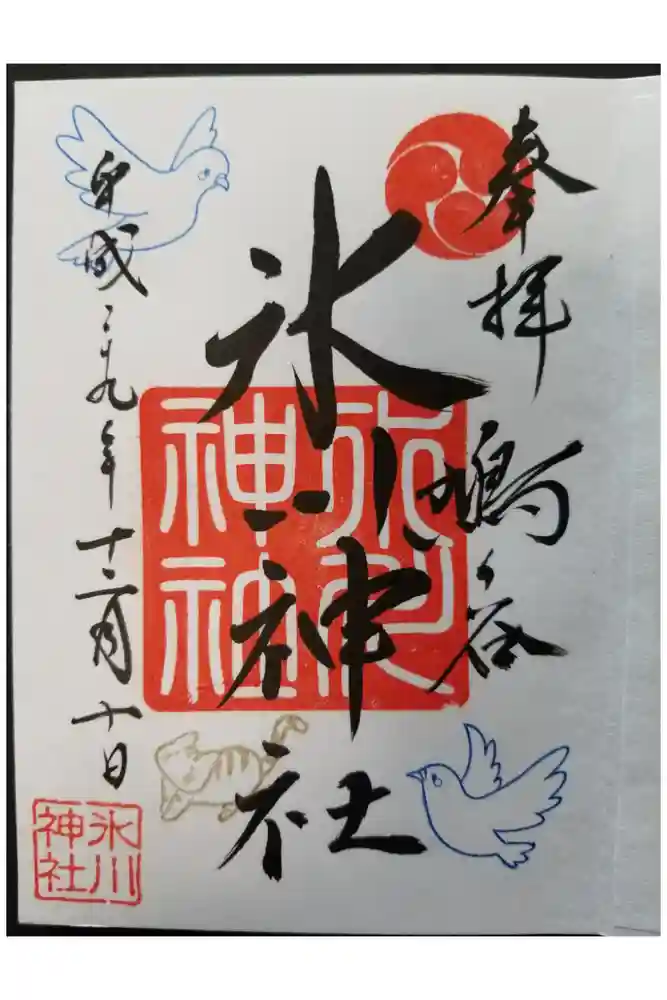 奉拝
鳩ヶ谷
氷川神社
氷川神社
平成二十九年十二月十日
氷川神社